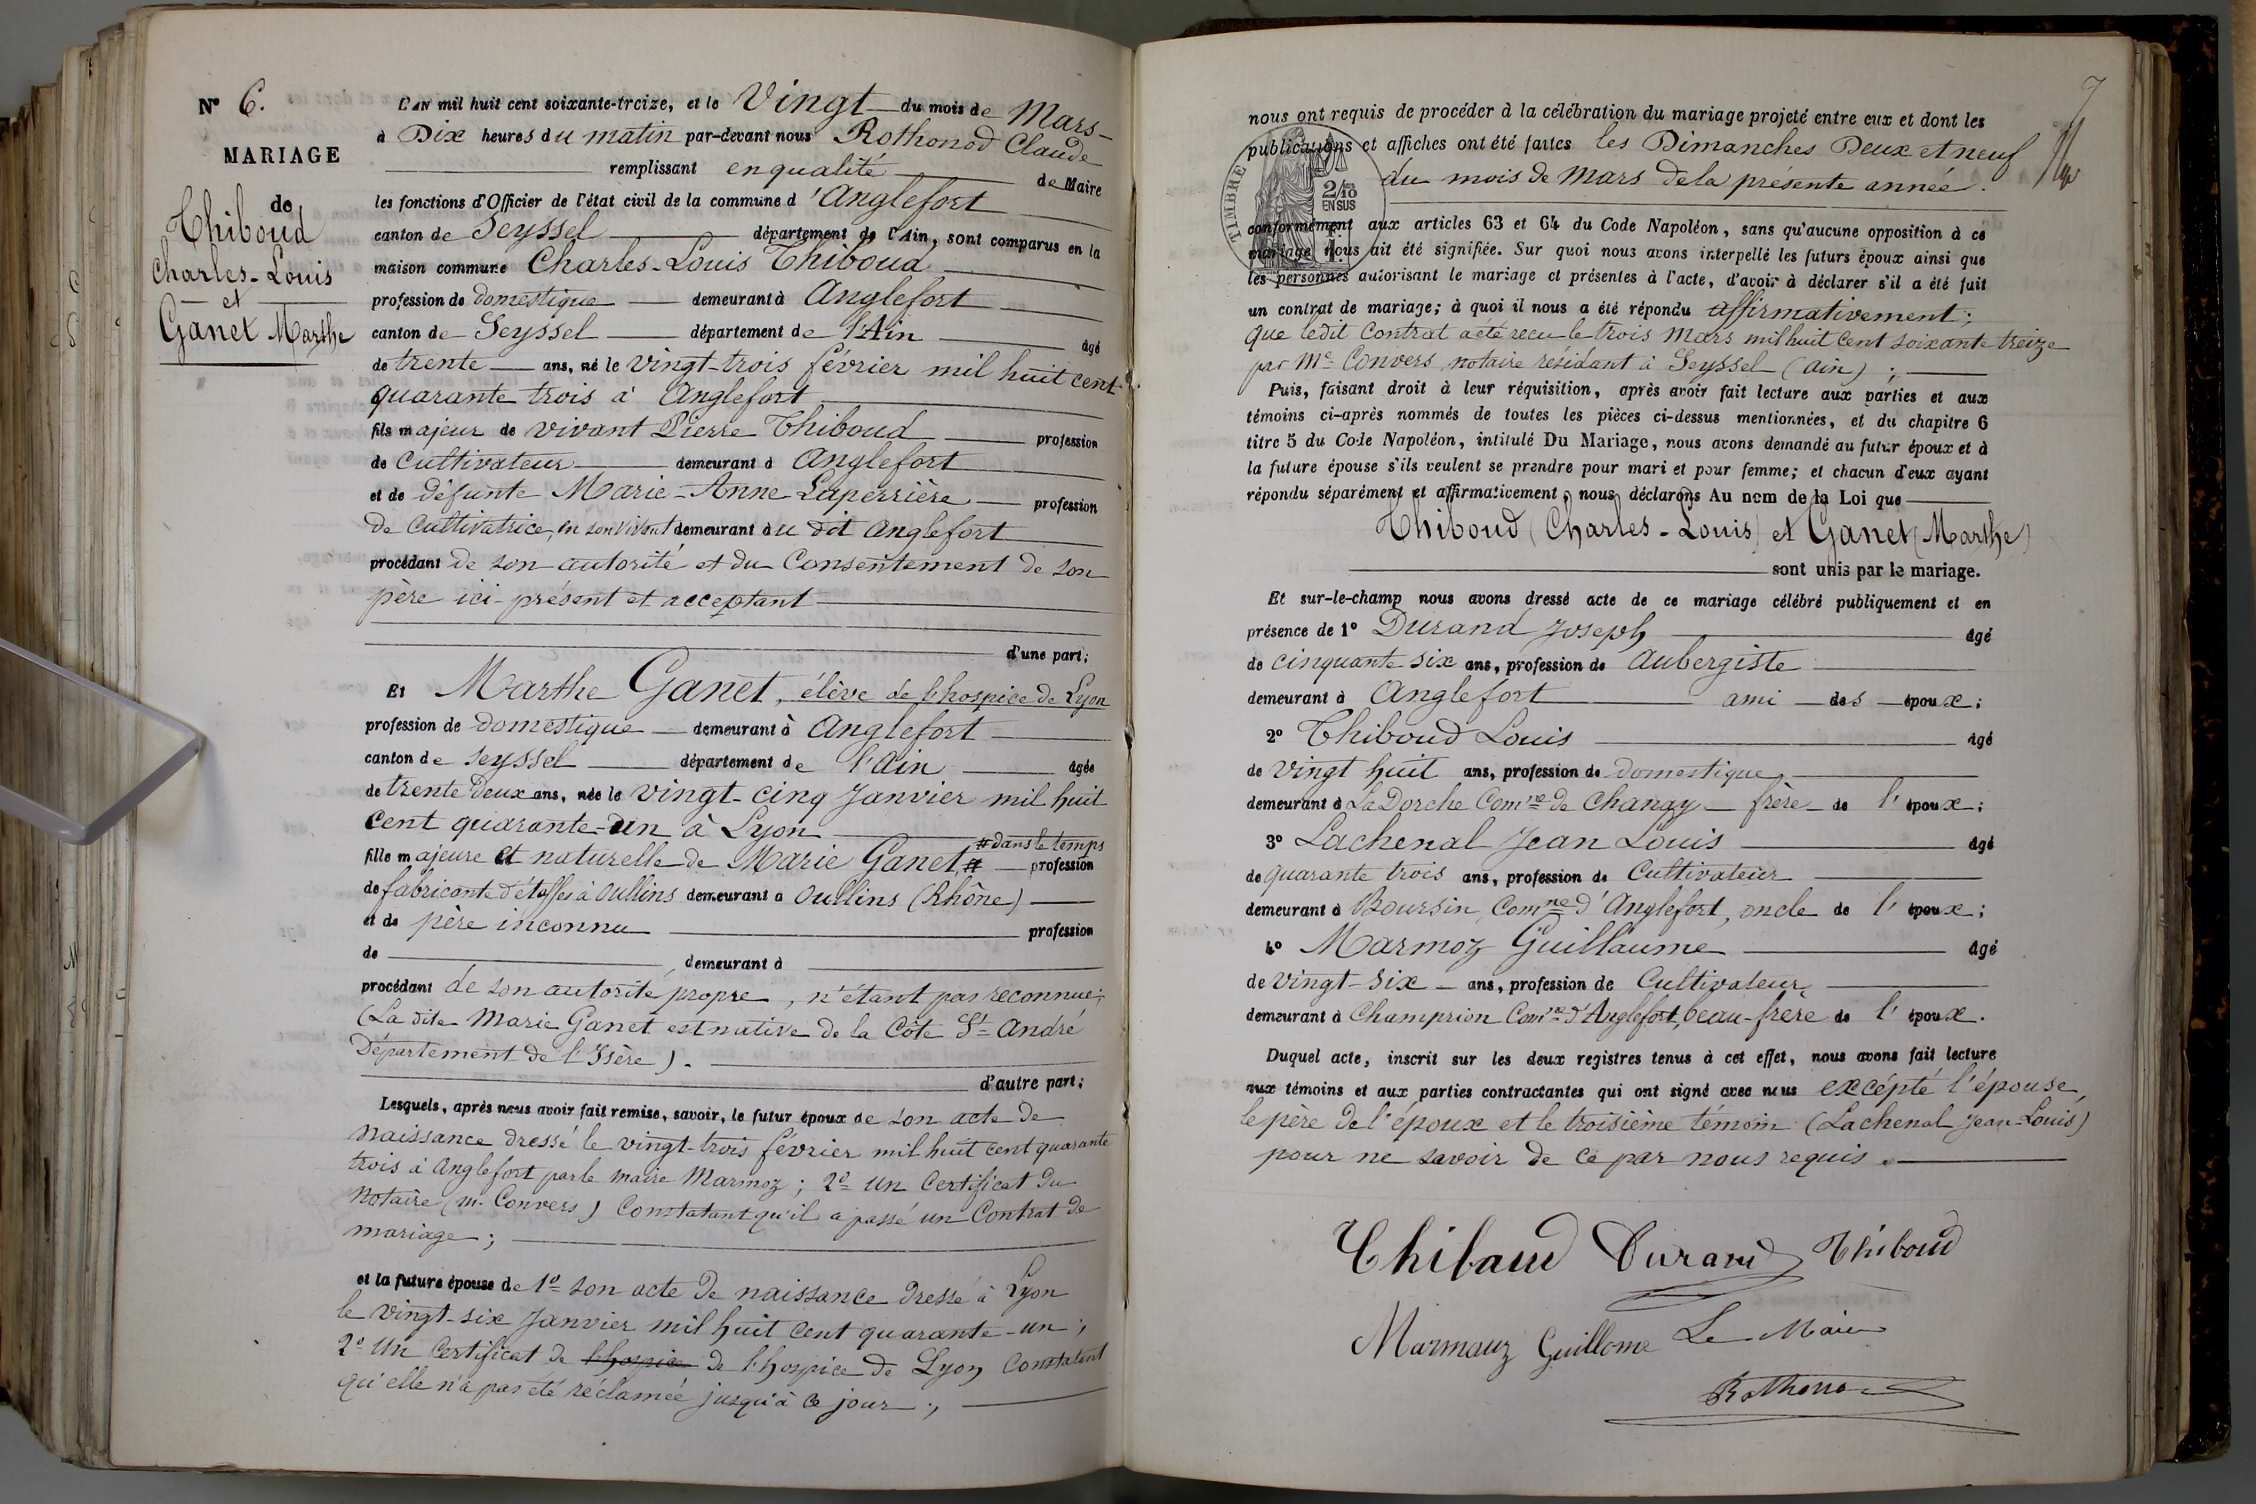 N° 6.
MARIAGE
de
Thiboud
Charles-Louis
et
Ganet Marthe
L'AN mil huit cent soixante-treize, et le Vingt du mois de Mars
à Dix heures du matin par-devant nous Rothonod Claude
remplissant en qualité de Maire
les fonctions d'Officier de l'état civil de la commune d'Anglefort
canton de Seyssel département de l'Ain, sont comparus en la
maison commune Charles-Louis Thiboud
profession de domestique demeurant à Anglefort
canton de Seyssel département de l'Ain âgé
de trente ans, né le vingt-trois février mil huit cent
quarante trois à Anglefort
fils majeur de vivant Pierre Thiboud profession
de Cultivateur demeurant à Anglefort
et de défunte Marie-Anne Laperrière profession
de Cultivatrice, en son vivant demeurant au dit Anglefort
procédant de son autorité et du Consentement de son
père ici présent et acceptant
d'une part;
Et Marthe Ganet, élève de l'hospice de Lyon
profession de domestique demeurant à Anglefort
canton de Seyssel département de l'Ain âgée
de trente deux ans, née le vingt-cinq Janvier mil huit
cent quarante-un à Lyon
# dans le temps
fille majeure et naturelle de Marie Ganet, # profession
de fabricante d'étoffes à Oullins demeurant à Oullins (Rhône)
et de père inconnu profession
de demeurant à
procédant de son autorité propre, n'étant pas reconnue;
(La dite Marie Ganet est native de la Côte St André
Département de l'Isère).
d'autre part;
Lesquels, après nous avoir fait remise, savoir, le futur époux de son acte de
naissance dressé le vingt-trois février mil huit cent quarante
trois à Anglefort par le maire Marmoz; 2° un Certificat du
Notaire (M. Convers) Constatant qu'il a passé un Contrat de
mariage;
et la future épouse de 1° son acte de naissance dressé à Lyon
le vingt-six Janvier mil huit cent quarante-un;
2° Un Certificat de l'hospice de l'hospice de Lyon Constatant
qu'elle n'a pas été réclamée jusqu'à ce jour;
7
nous ont requis de procéder à la célébration du mariage projeté entre eux et dont les
publications et affiches ont été faites les Dimanches Deux et neuf
du mois de Mars de la présente année.
TIMBRE
2/10
EN SUS
conformément aux articles 63 et 64 du Code Napoléon, sans qu'aucune opposition à ce
mariage nous ait été signifiée. Sur quoi nous avons interpellé les futurs époux ainsi que
les personnes autorisant le mariage et présentes à l'acte, d'avoir à déclarer s'il a été fait
un contrat de mariage; à quoi il nous a été répondu affirmativement;
que ledit Contrat a été recu le trois Mars mil huit Cent soixante treize
par Me Convers, notaire résidant à Seyssel (Ain);
Puis, faisant droit à leur réquisition, après avoir fait lecture aux parties et aux
témoins ci-après nommés de toutes les pièces ci-dessus mentionnées, et du chapitre 6
titre 5 du Code Napoléon, intitulé Du Mariage, nous avons demandé au futur époux et à
la future épouse s'ils veulent se prendre pour mari et pour femme; et chacun d'eux ayant
répondu séparément et affirmativement, nous déclarons Au nom de la Loi que
Thiboud (Charles-Louis) et Ganet (Marthe)
sont unis par le mariage.
Et sur-le-champ nous avons dressé acte de ce mariage célébré publiquement et en
présence de 1° Durand Joseph âgé
de cinquante six ans, profession de Aubergiste
demeurant à Anglefort ami des époux;
2° Thiboud Louis âgé
de vingt huit ans, profession de domestique
demeurant à La Dorche Comne de Chanay frère de l'époux;
3° Lachenal Jean Louis âgé
de quarante trois ans, profession de Cultivateur
demeurant à Boursin, Comne d'Anglefort, oncle de l'époux;
4° Marmoz Guillaume âgé
de vingt-six ans, profession de Cultivateur
demeurant à Champrion Comne d'Anglefort, beau-frère de l'époux.
Duquel acte, inscrit sur les deux registres tenus à cet effet, nous avons fait lecture
aux témoins et aux parties contractantes qui ont signé avec nous excépté l'épouse,
le père de l'époux et le troisième témoin (Lachenal Jean-Louis)
pour ne savoir de ce par nous requis.
Thibaud Durand Thiboud
Marmauz Guillome Le Maire
Rothonod